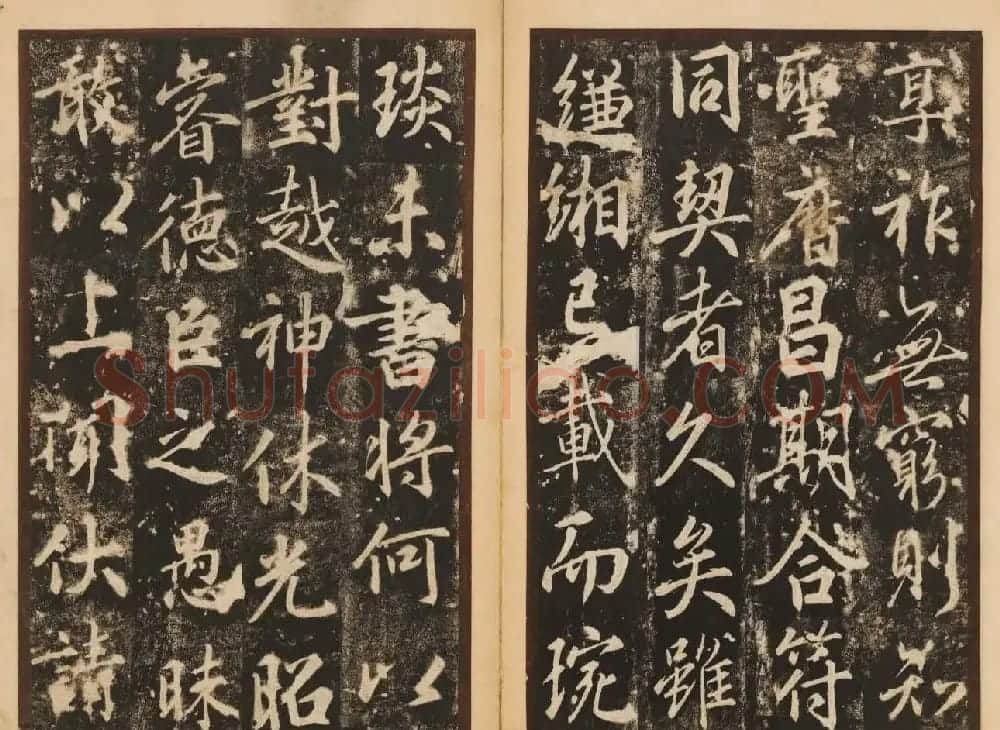 享祚無窮則知
聖曆昌期合符
同契者久矣雖
縑緗已載而琬
琰未書將何以
對越神休光昭
睿德臣之愚昧
敢以上聞伏請
Shufaziliao.COM